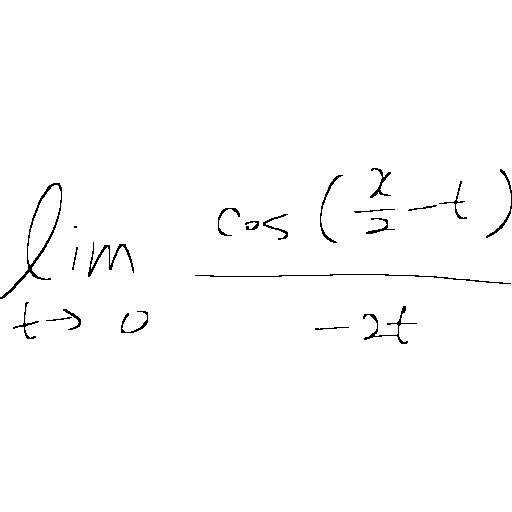 \lim_{t \to 0} \frac{\cos(\frac{x}{2}-t)}{-2t}